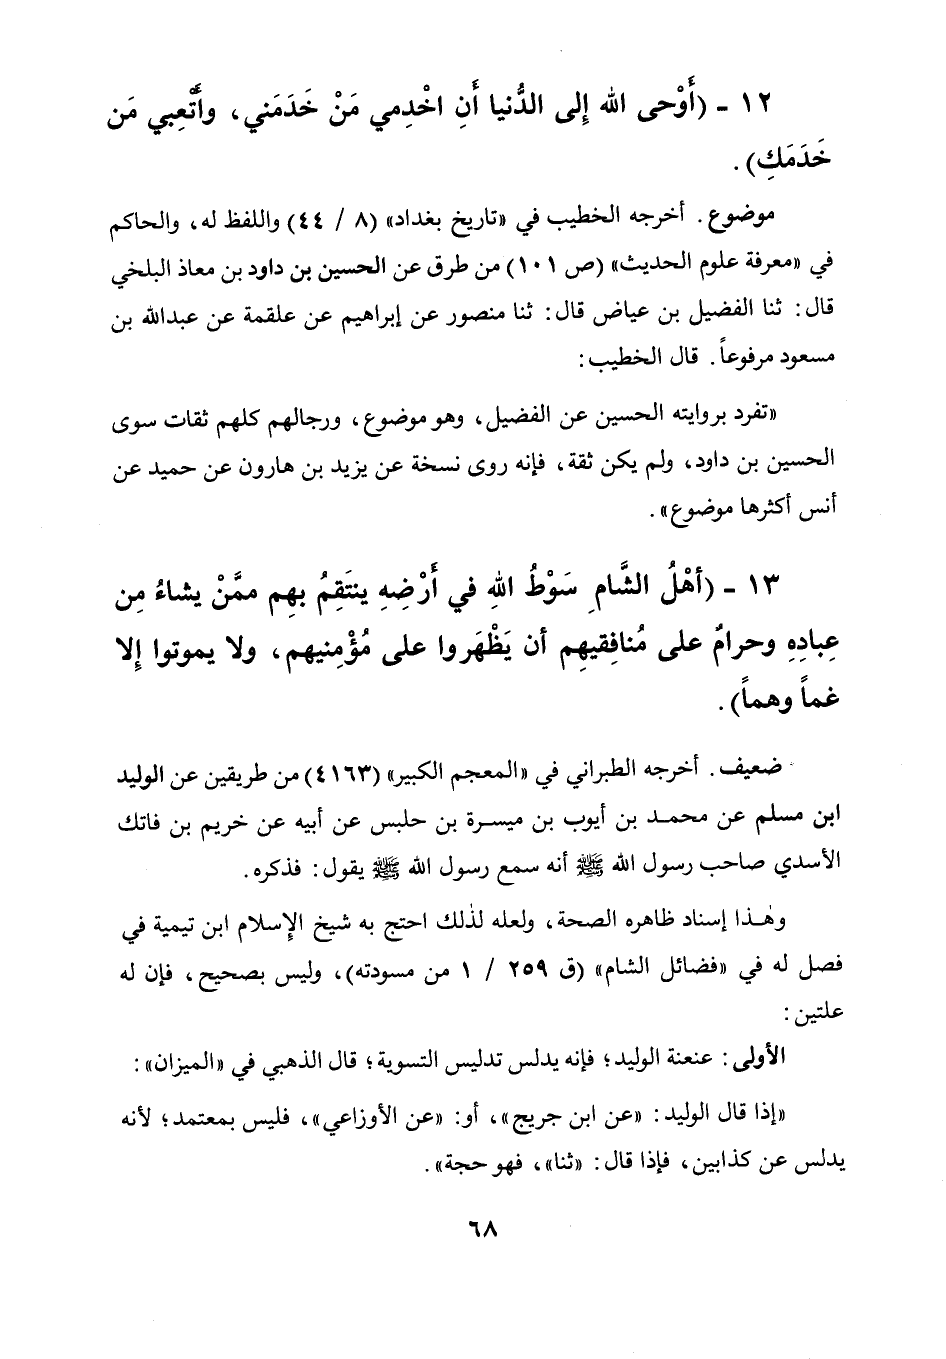 ١٢ - (أَوْحى الله إِلى الدُّنيا أَنِ اخْدِمي مَنْ خَدَمَني، وأَتْعِبي مَن
خَدَمَكِ).
موضوع. أخرجه الخطيب في «تاريخ بغداد» (٨ / ٤٤) واللفظ له، والحاكم
في «معرفة علوم الحديث» (ص ١٠١) من طرق عن الحسين بن داود بن معاذ البلخي
قال: ثنا الفضيل بن عياض قال: ثنا منصور عن إبراهيم عن علقمة عن عبدالله بن
مسعود مرفوعاً. قال الخطيب:
«تفرد بروايته الحسين عن الفضيل، وهو موضوع، ورجالهم كلهم ثقات سوى
الحسين بن داود، ولم يكن ثقة، فإنه روى نسخة عن يزيد بن هارون عن حميد عن
أنس أكثرها موضوع».
١٣ - (أهْلُ الشَّامِ سَوْطُ اللهِ في أَرْضِهِ ينتَقِمُ بِهِم ممَّنْ يشاءُ مِن
عِبادِهِ وحرامٌ على مُنافِقيهِم أن يَظْهَروا على مُؤْمِنيهم، ولا يموتوا إِلا
غماً وهماً).
ضعيف. أخرجه الطبراني في «المعجم الكبير» (٤١٦٣) من طريقين عن الوليد
ابن مسلم عن محمد بن أيوب بن ميسرة بن حلبس عن أبيه عن خريم بن فاتك
الأسدي صاحب رسول الله ﷺ أنه سمع رسول الله ﷺ يقول: فذكره.
وهٰذا إسناد ظاهره الصحة، ولعله لذٰلك احتج به شيخ الإِسلام ابن تيمية في
فصل له في «فضائل الشام» (ق ٢٥٩ / ١ من مسودته)، وليس بصحيح، فإن له
علتين:
الأولى: عنعنة الوليد؛ فإنه يدلس تدليس التسوية؛ قال الذهبي في «الميزان»:
«إذا قال الوليد: «عن ابن جريج»، أو: «عن الأوزاعي»، فليس بمعتمد؛ لأنه
يدلس عن كذابين، فإذا قال: «ثنا»، فهو حجة».
٦٨